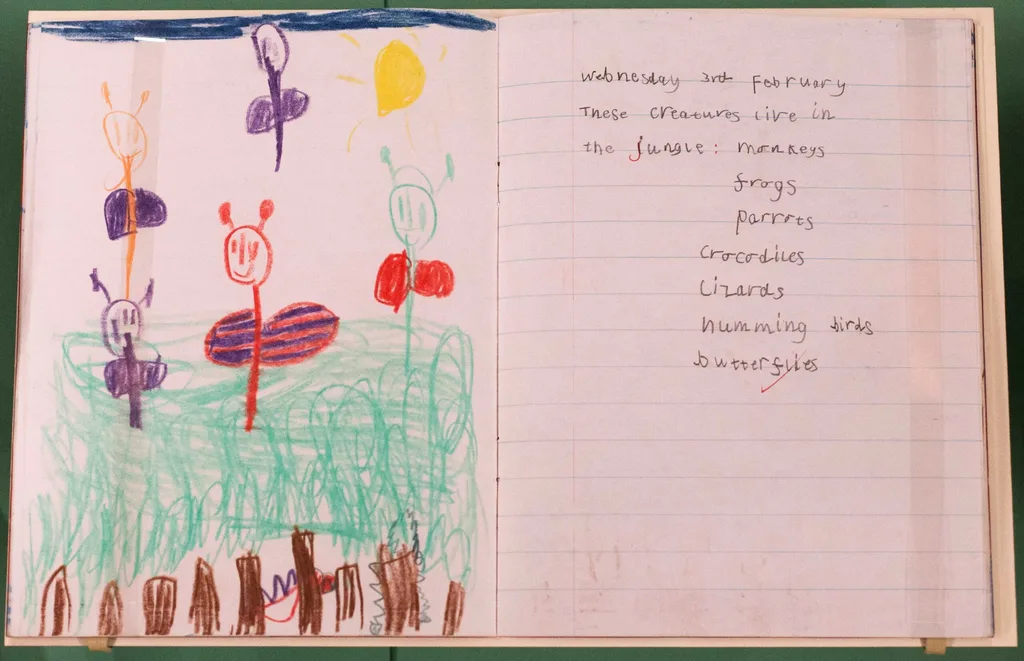 Wednesday 3rd February
These creatures live in
the jungle: monkeys
frogs
parrots
crocodiles
Lizards
humming birds
butterflies